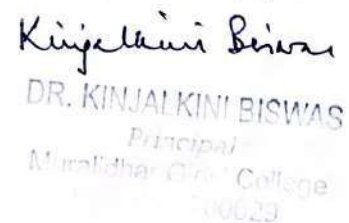 Kinjalkini Biswas
DR. KINJALKINI BISWAS
Principal
Muralidhar Girls' College
700029